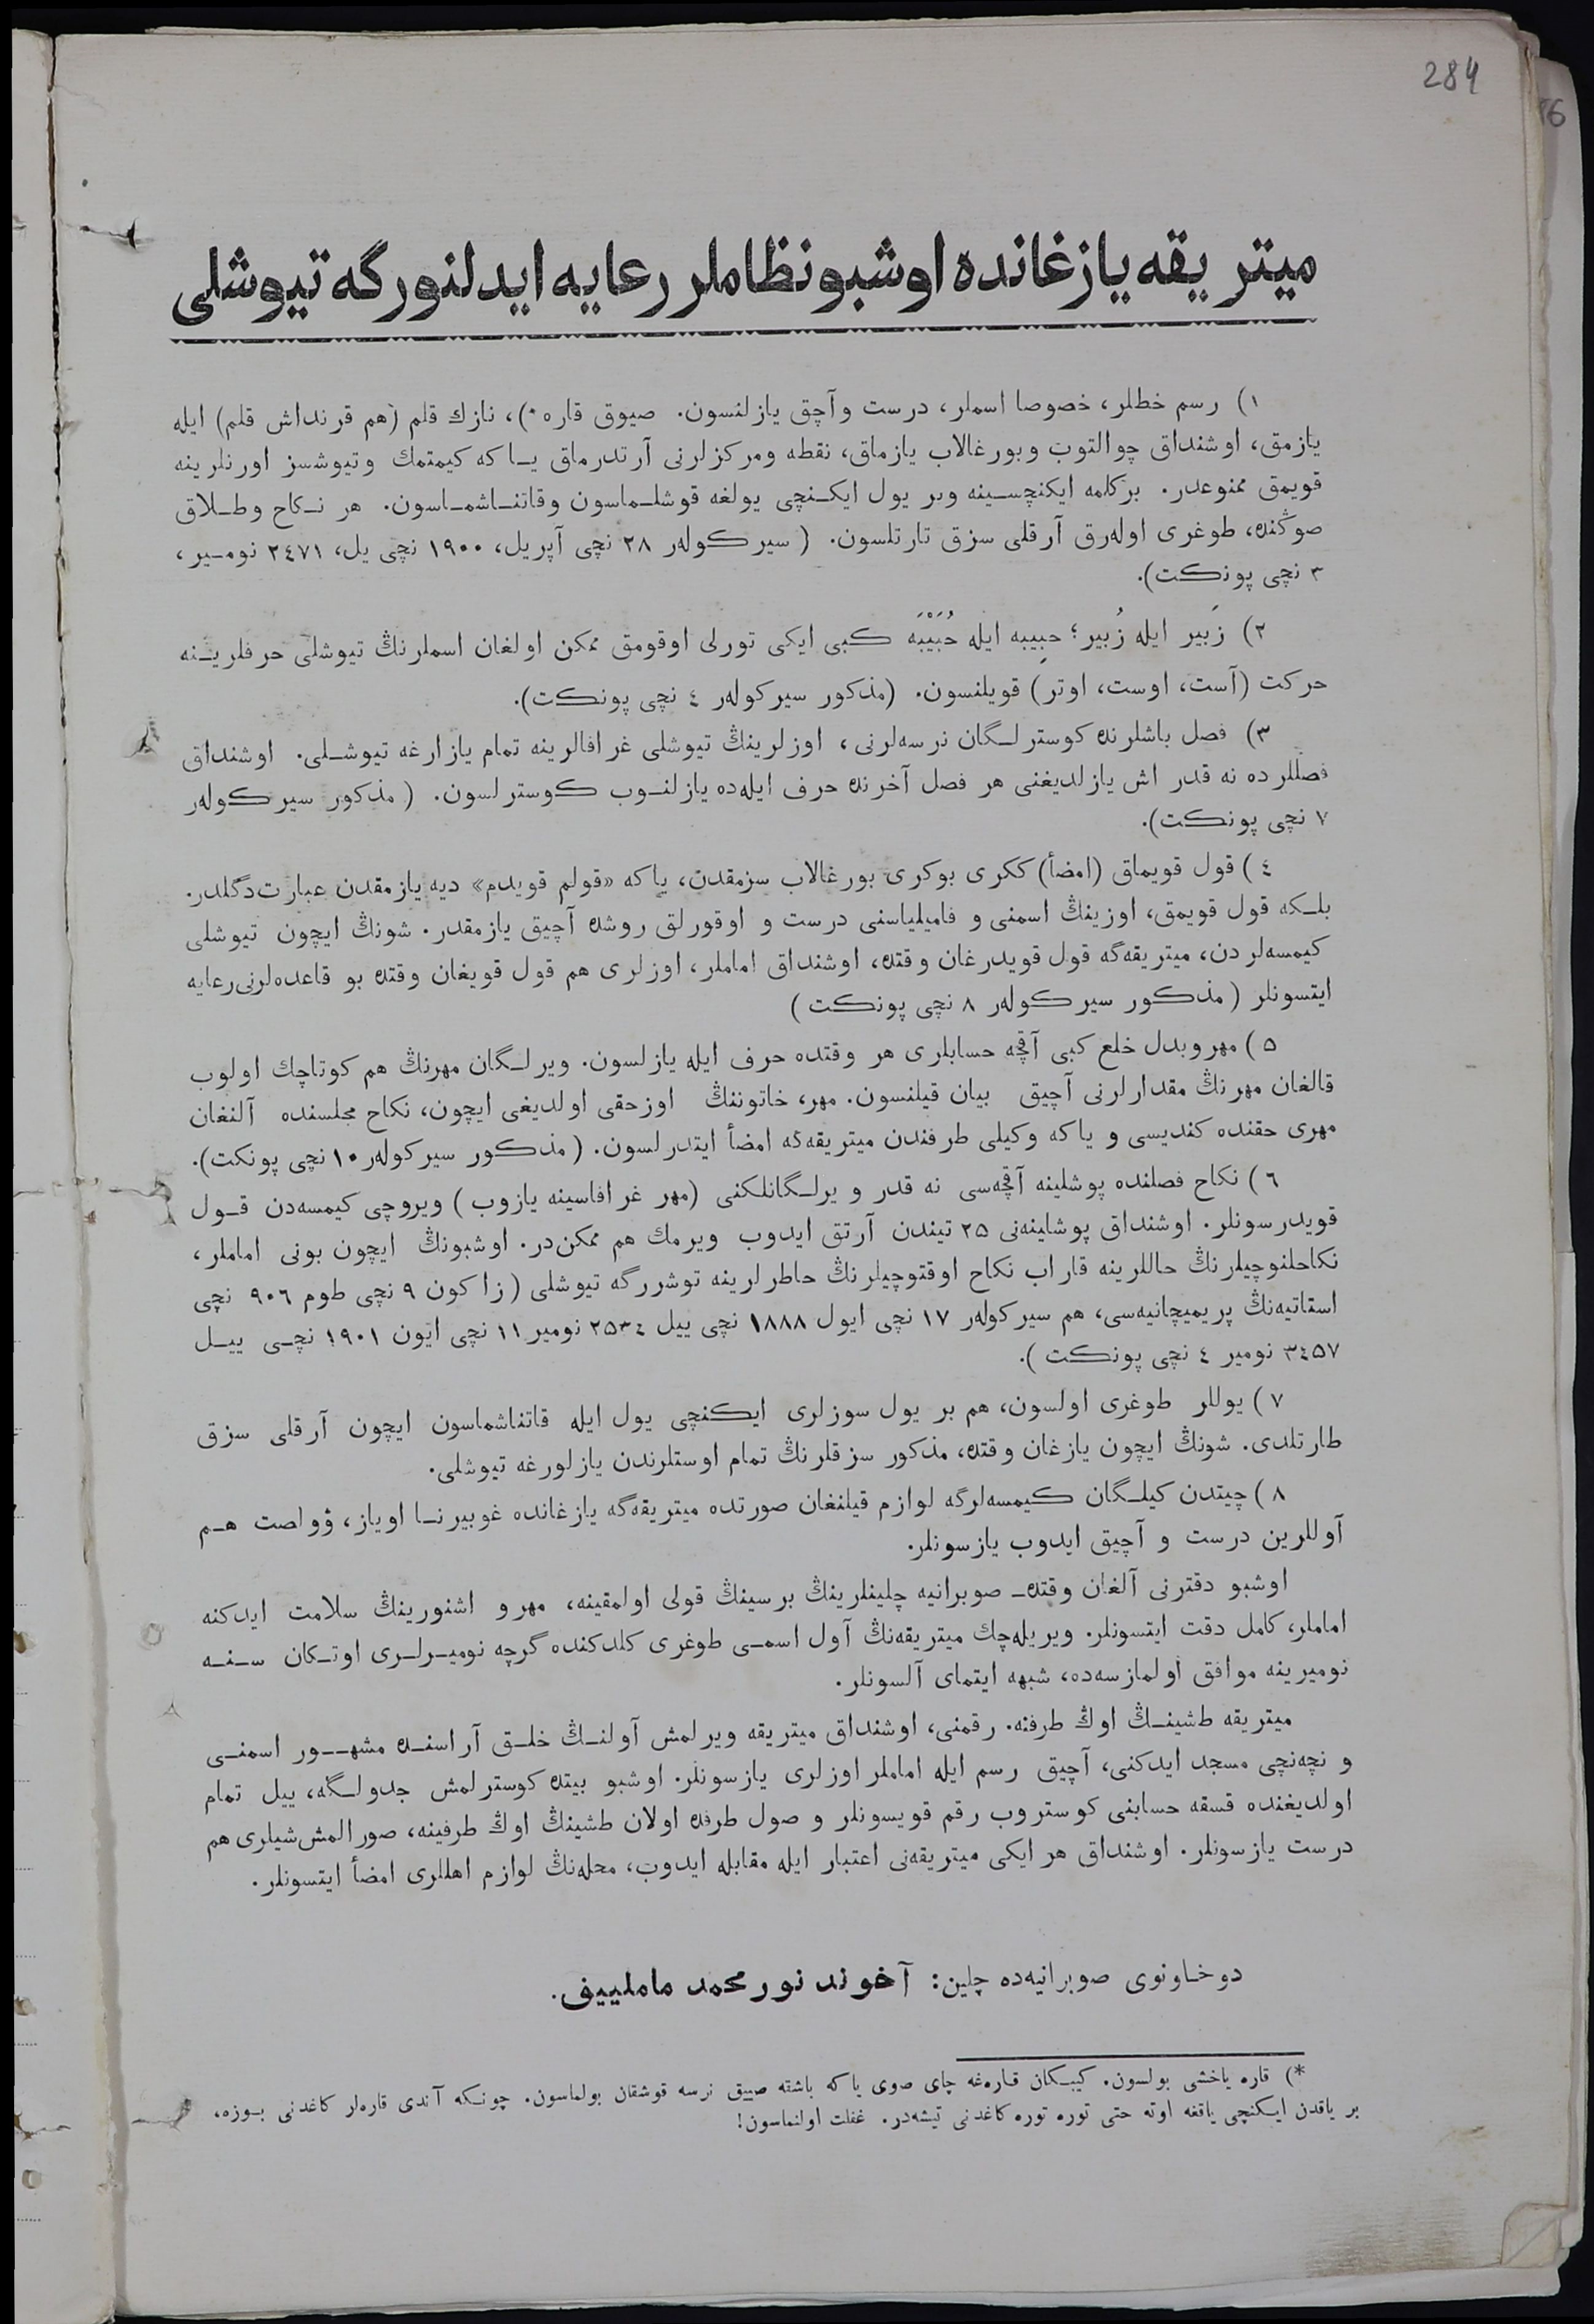 284
میتریقه یازغانده اوشبو نظاملر رعایه ایدلنورگه تیوشلی
۱) رسم خطلر، خصوصا اسملر، درست وآچق یازلنسون. صیوق قاره *)، نازك قلم (هم قرنداش قلم) ایله
یازمق، اوشنداق چوالتوب وبورغالاب یازماق، نقطه ومرکزلرنی آرتدرماق یاکه کیمتمك وتیوشسز اورنلرینه
قویمق ممنوعدر. برکلمه ایکنچسینه وبر یول ایکنچی یولغه قوشلماسون وقاتناشماسون. هر نکاح وطلاق
صوڭنده، طوغری اولەرق آرقلی سزق تارتلسون. (سیرکولەر ۲۸ نچی آپریل، ۱۹۰۰ نچی یل، ۲٤۷۱ نومیر،
۳ نچی پونکت).
۲) زَبیر ایله زُبیر؛ حبِیبه ایله حُبَیْبَه کبی ایکی تورلی اوقومق ممکن اولغان اسملرنڭ تیوشلی حرفلرینه
حرکت (آست، اوست، اوتر) قویلنسون. (مذکور سیرکولەر ٤ نچی پونکت).
۳) فصل باشلرنده کوسترلگان نرسەلرنی، اوزلرینڭ تیوشلی غرافالرینه تمام یازارغه تیوشلی. اوشنداق
فصللرده نه قدر اش یازلدیغنی هر فصل آخرنده حرف ایلەده یازلنوب کوسترلسون. (مذکور سیرکولەر
۷ نچی پونکت).
٤) قول قویماق (امضأ) ککری بوکری بورغالاب سزمقدن، یاکه «قولم قویدم» دیه یازمقدن عبارت دگلدر.
بلکه قول قویمق، اوزینڭ اسمنی و فامیلیاسنی درست و اوقورلق روشده آچیق یازمقدر. شونڭ ایچون تیوشلی
کیمسەلردن، میتریقەگه قول قویدرغان وقتده، اوشنداق اماملر، اوزلری هم قول قویغان وقتده بو قاعدەلرنی رعایه
ایتسونلر (مذکور سیرکولەر ۸ نچی پونکت)
۵) مهر وبدل خلع کبی آقچه حسابلری هر وقتده حرف ایله یازلسون. ویرلگان مهرنڭ هم کوتاچك اولوب
قالغان مهرنڭ مقدارلرنی آچیق بیان قیلنسون. مهر، خاتوننڭ اوزحقی اولدیغی ایچون، نکاح مجلسنده آلنغان
مهری حقنده کندیسی و یاکه وکیلی طرفندن میتریقەگه امضأ ایتدرلسون. (مذکور سیرکولەر ۱۰ نچی پونکت).
٦) نکاح فصلنده پوشلینه آقچەسی نه قدر ویرلگانلکنی (مهر غرافاسینه یازوب) ویروچی کیمسەدن قول
قویدرسونلر. اوشنداق پوشلینەنی ۲۵ تیندن آرتق ایدوب ویرمك هم ممکن در. اوشبونڭ ایچون بونی اماملر،
نکاحلنوچیلرنڭ حاللرینه قاراب نکاح اوقتوچیلرنڭ خاطرلرینه توشررگه تیوشلی (زاکون ۹ نچی طوم ۹۰٦ نچی
استاتیەنڭ پریمیچانیەسی، هم سیرکولەر ۱۷ نچی ایول ۱۸۸۸ نچی ییل ۲۵۳٤ نومیر ۱۱ نچی ایون ۱۹۰۱ نچی ییل
۳٤۵۷ نومیر ٤ نچی پونکت).
۷) یوللر طوغری اولسون، هم بر یول سوزلری ایکنچی یول ایله قاتناشماسون ایچون آرقلی سزق
طارتلدی. شونڭ ایچون یازغان وقتده، مذکور سزقلرنڭ تمام اوستلرندن یازلورغه تیوشلی.
۸) چیتدن کیلگان کیمسەلرگه لوازم قیلنغان صورتده میتریقەگه یازغانده غوبیرنا اویاز، ۋولصت هم
آوللرین درست و آچیق ایدوب یازسونلر.
اوشبو دفترنی آلغان وقتده صوبرانیه چلینلرینڭ برسینڭ قولی اولمقینه، مهر و اشنورینڭ سلامت ایدکنه
اماملر، کامل دقت ایتسونلر. ویریلەچك میتریقەنڭ آول اسمی طوغری کلدکنده گرچه نومیرلری اوتکان سنه
نومیرینه موافق اولمازسەده، شبهه ایتمای آلسونلر.
میتریقه طشینڭ اوڭ طرفنه. رقمنی، اوشنداق میتریقه ویرلمش آولنڭ خلق آراسنده مشهور اسمنی
و نچەنچی مسجد ایدکنی، آچیق رسم ایله اماملر اوزلری یازسونلر. اوشبو بیتده کوسترلمش جدولگه، ییل تمام
اولدیغنده قسقه حسابنی کوستروب رقم قویسونلر و صول طرفده اولان طشینڭ اوڭ طرفینه، صورالمش شیلری هم
درست یازسونلر. اوشنداق هر ایکی میتریقەنی اعتبار ایله مقابله ایدوب، محلەنڭ لوازم اهللری امضأ ایتسونلر.
دوخاونوی صوبرانیەده چلین: آخوند نورمحمد ماملییف.
*) قاره یاخشی بولسون. کیبکان قارەغه چای صوی یاکه باشته صیق نرسه قوشقان بولماسون. چونکه آندی قارەلر کاغدنی بوزه،
بر یاقدن ایکنچی یاقغه اوته حتی توره توره کاغدنی تیشەدر. غفلت اولنماسون!